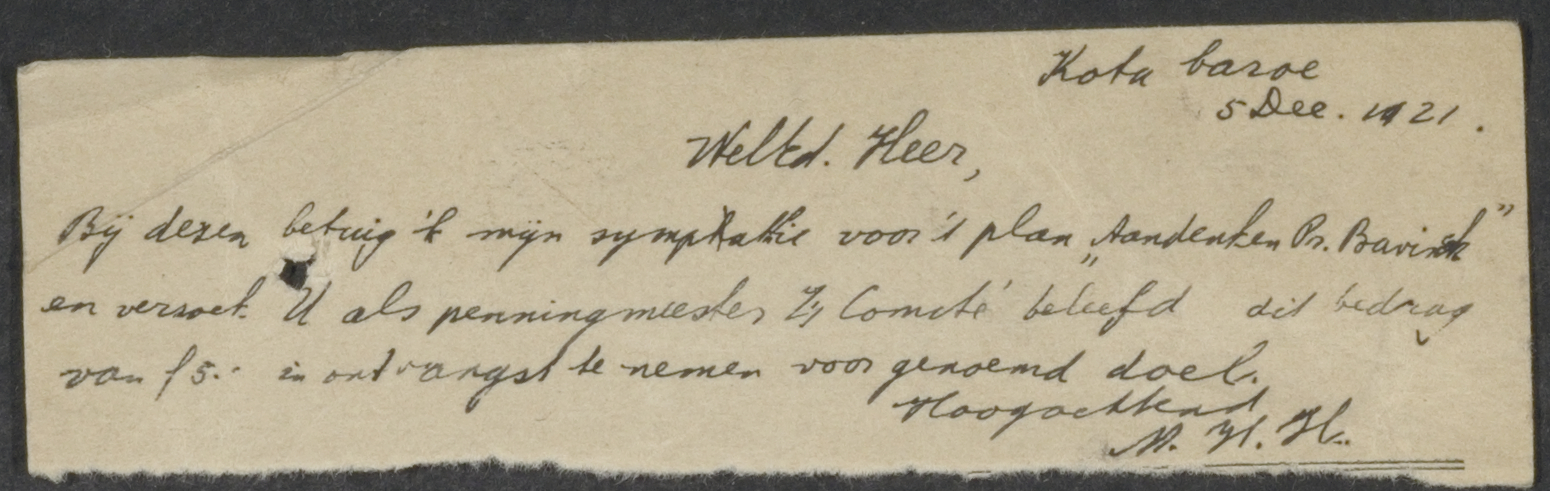 Kota baroe
5 Dec. 1921.
WelEd. Heer,
Bij dezen betuig 'k mijn symphathie voor 't plan „Aandenken Pr. Bavinck"
en verzoek U als penningmeester Comité beleefd dit bedrag
van f 5.- in ontvangst te nemen voor genoemd doel.
Hoogachtend
N. H. H.